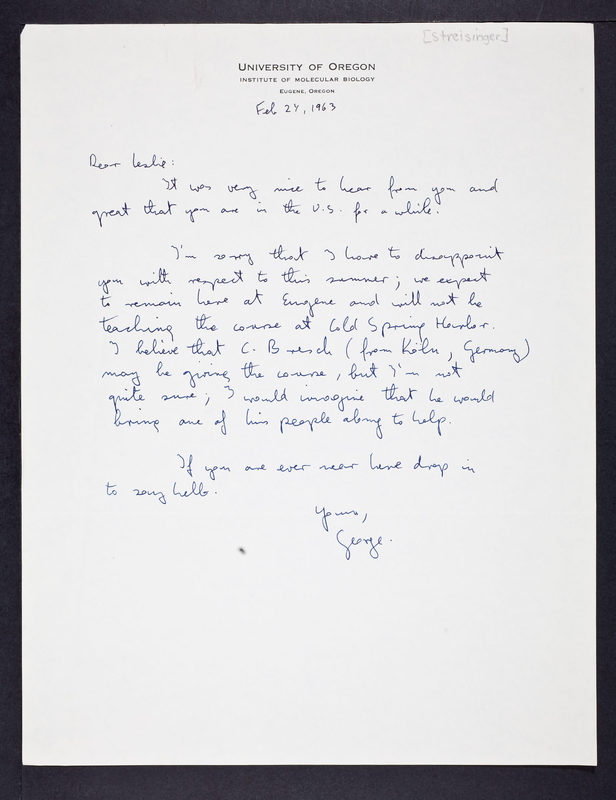 [Streisinger]
UNIVERSITY OF OREGON
INSTITUTE OF MOLECULAR BIOLOGY
EUGENE, OREGON
Feb 24, 1963
Dear Leslie:
It was very nice to hear from you and
great that you are in the U.S. for a while.
I'm sorry that I have to disappoint
you with respect to this summer; we expect
to remain here at Eugene and will not be
teaching the course at Cold Spring Harbor.
I believe that C. Bresch (from Köln, Germany)
may be giving the course, but I'm not
quite sure; I would imagine that he would
bring one of his people along to help.
If you are ever near here drop in
to say hello.
Yours,
George.